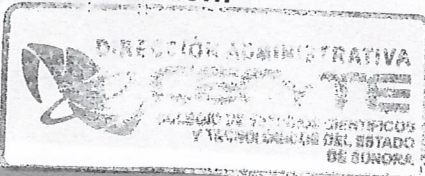 DIRECCIÓN ADMINISTRATIVA
CECYTE
COLEGIO DE ESTUDIOS CIENTIFICOS
Y TECNOLOGICOS DEL ESTADO
DE SONORA